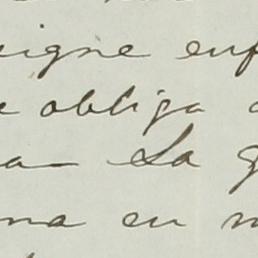 signe enf
e obliga
a — La g
na en